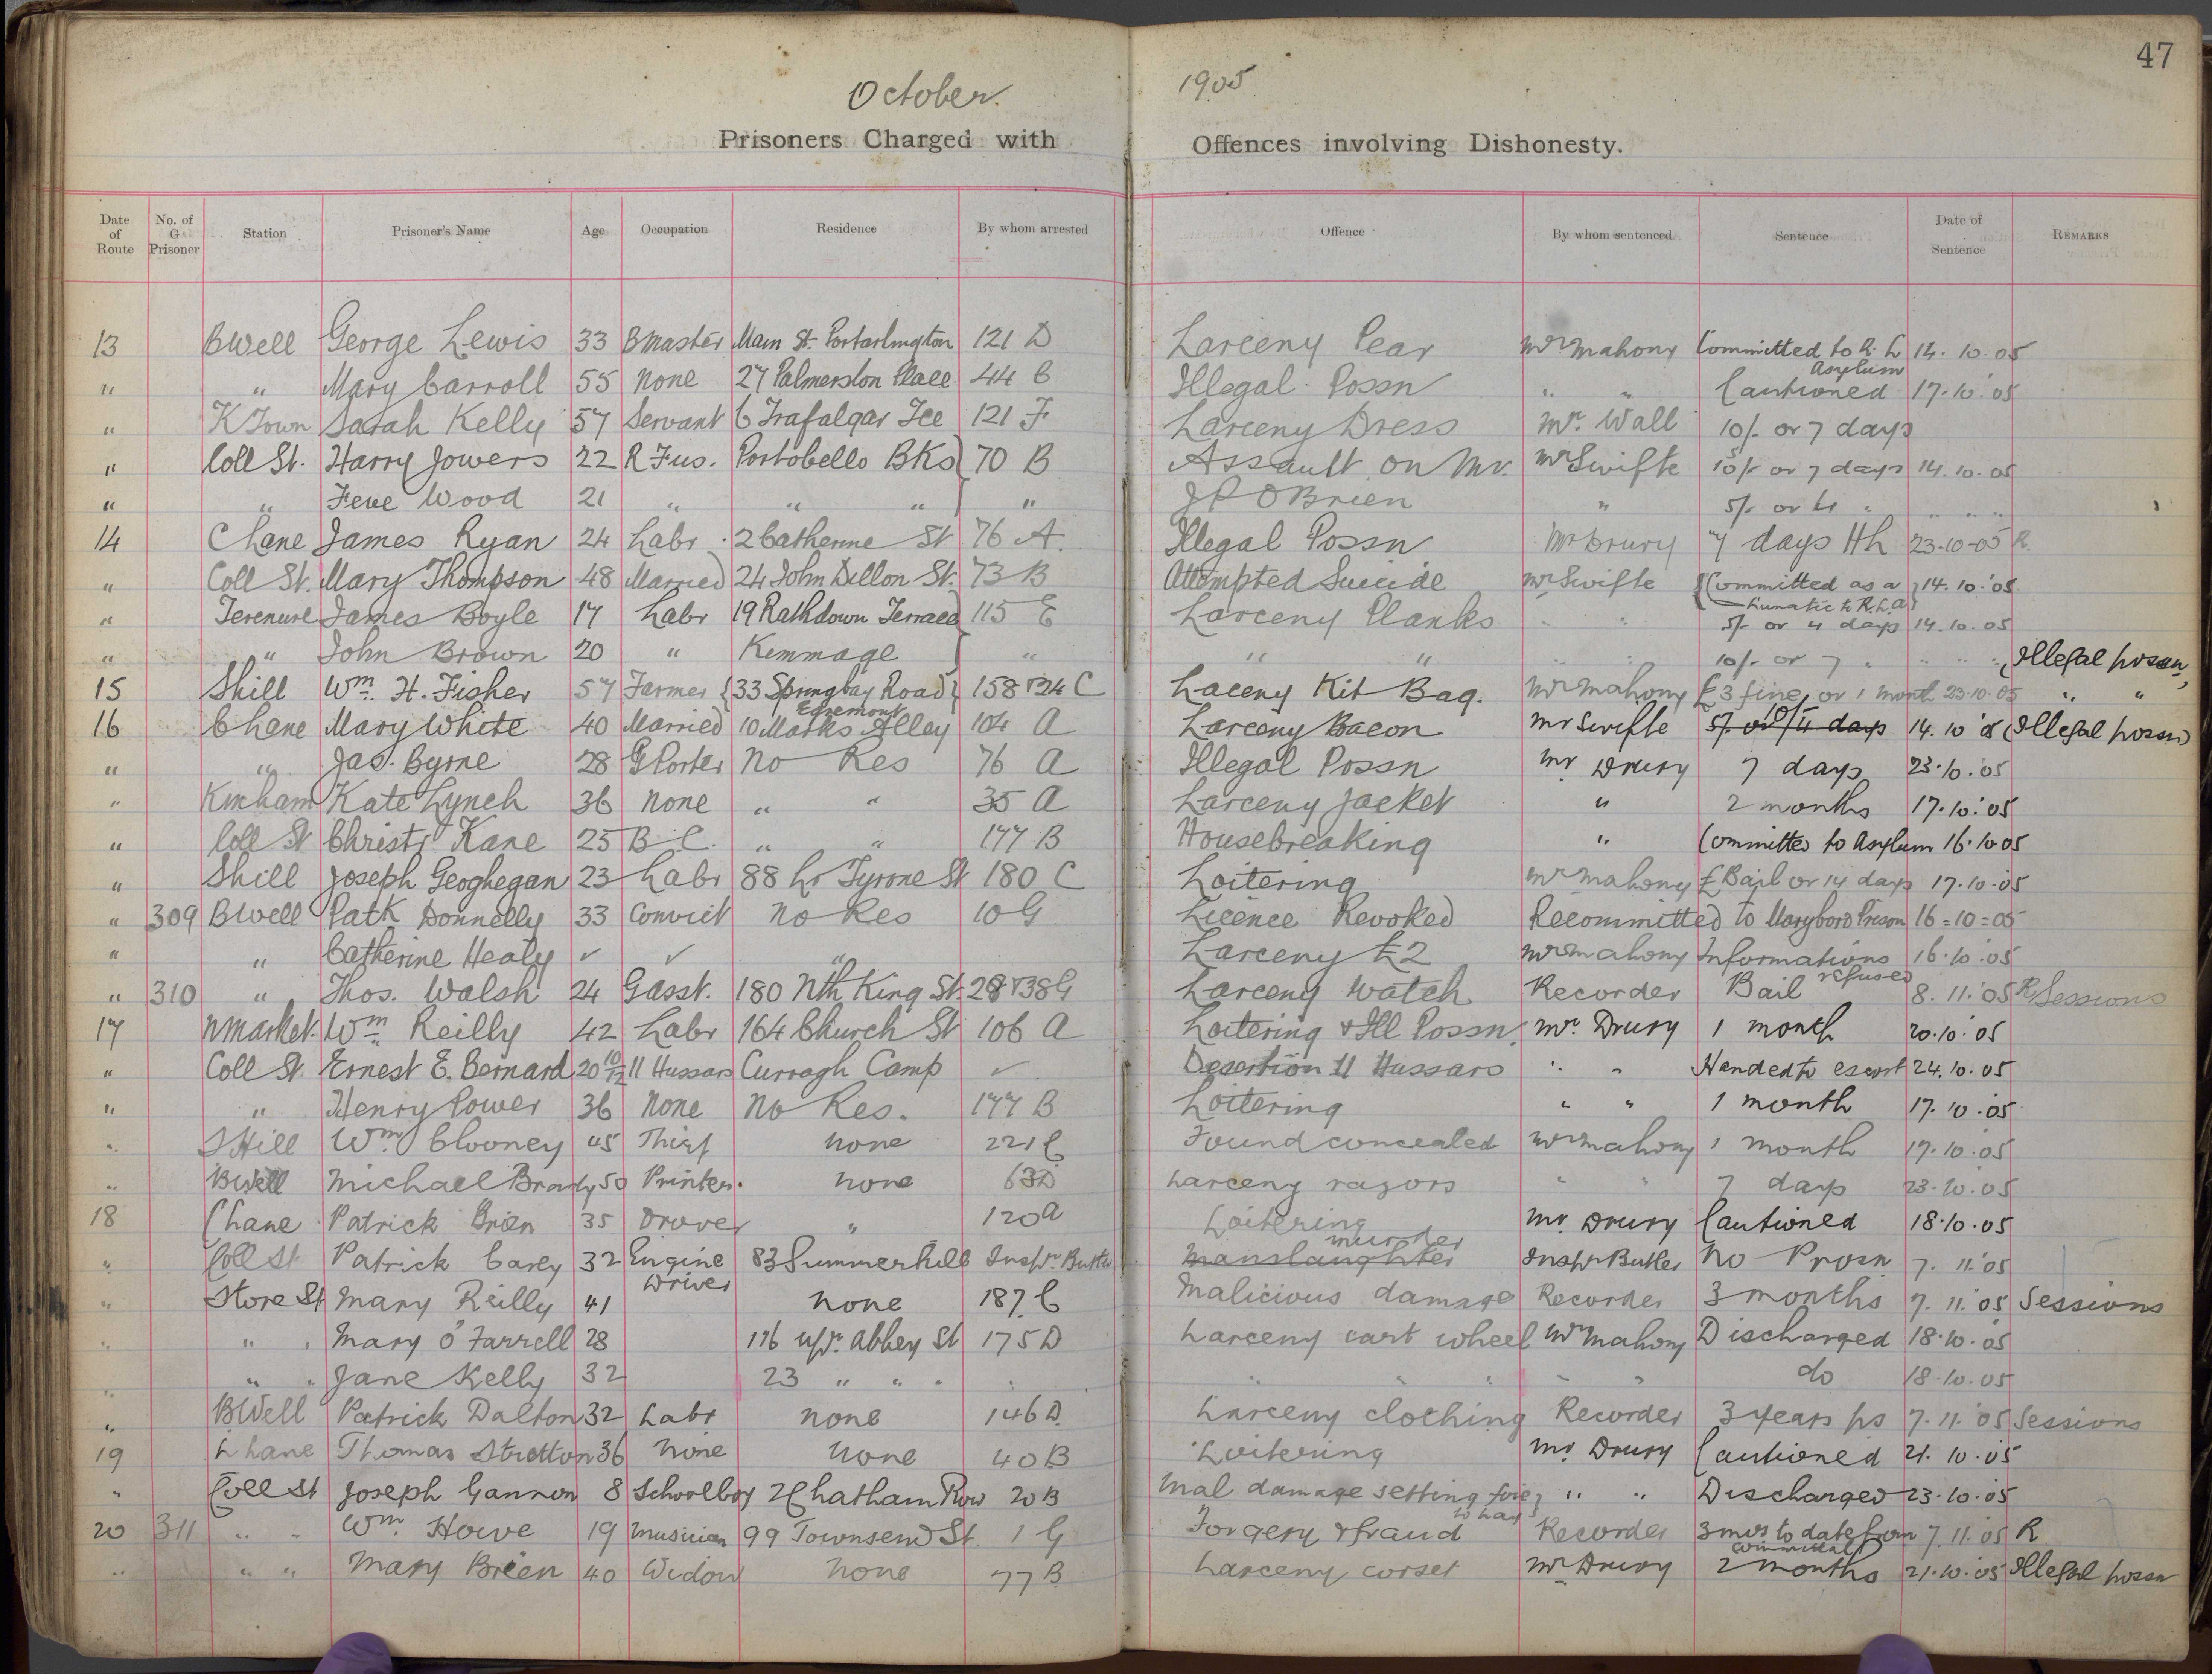 47
October 1905
Prisoners Charged with Offences involving Dishonesty.
Date of Route No. of G Prisoner Station Prisoner's Name Age Occupation Residence By whom arrested Offence By whom sentenced Sentence Date of Sentence REMARKS
13 BWell George Lewis 33 BMaster Main St. Portarlington 121 D Larceny Pear Mr Mahony Committed to R. L Asylum 14. 10. 05
" " Mary Carroll 55 None 27 Palmerston Place 44 C Illegal Possn " " Cautioned 17. 10. 05
" KTown Sarah Kelly 57 Servant 6 Trafalgar Tce 121 F Larceny Dress Mr. Wall 10/- or 7 days
" Coll St. Harry Jowers 22 R Fus. Portobello BKs 70 B Assault on Mr. Mr Swifte 10/- or 7 days 14. 10. 05
" " Wood 21 " " " " J P O Brien " 5/- or 4 " " " "
14 C Lane James Ryan 24 Labr 2 Catherine St 76 A. Illegal Possn Mr Drury 7 days HL 23-10-05 R
" Coll St. Mary Thompson 48 Married 24 John Dillon St. 73 B Attempted Suicide Mr Swifte Committed as a Lunatic to R.L.A 14. 10. '05
" Terenure James Boyle 17 Labr 19 Rathdown Terrace 115 E Larceny Planks " " 5/- or 4 days 14. 10. 05
" " John Brown 20 " Kemmage " " " " " 10/- or 7 " " " " (Illegal possn)
15 SHill Wm. H. Fisher 57 Farmer 33 Springbay Road Egremont 158 & 24 C Laceny Kit Bag. Mr Mahony £3 fine, or 1 month 23. 10. 05 " "
16 C Lane Mary White 40 Married 10 Marks Alley 104 A Larceny Bacon Mr Swifte 5/- or 4 days 14. 10 '05 (Illegal possn)
" " Jas. Byrne 28 GPorter No Res 76 A Illegal Possn Mr Drury 7 days 23. 10. '05
" Kmham Kate Lynch 36 None " " 35 A Larceny Jacket " 2 months 17. 10. '05
" Coll St Christr Kane 25 B. C. " " 177 B Housebreaking " Committed to Asylum 16. 10 05
" SHill Joseph Geoghegan 23 Labr 88 Lr Tyrone St 180 C Loitering Mr Mahony £ Bail or 14 days 17. 10. 05
" 309 BWell Patk Donnelly 33 Convict No Res 10 G Licence Revoked Recommitted to Maryboro Prison 16=10=05
" " Catherine Healy ✓ ✓ " Larceny £2 Mr Mahony Informations refused 16. 10. 05
" 310 " Thos. Walsh 24 Gasst. 180 Nth King St. 28 & 38 G Larceny Watch Recorder Bail 8. 11. '05 R Sessions
17 NMarket. Wm Reilly 42 Labr 164 Church St 106 A Loitering & Ill Possn. Mr. Drury 1 month 20. 10. '05
" Coll St. Ernest E. Bernard 20 10/12 11 Hussars Curragh Camp ✓ Desertion 11 Hussars " " Handed to escort 24. 10. 05
" " Henry Power 36 None No Res. 177 B Loitering " " 1 month 17. 10. '05
" SHill Wm Clooney 45 Thief none 221 C Found concealed Mr Mahony 1 month 17. 10. 05
" BWell Michael Brady 50 Printer. none 63 D Larceny razors " " 7 days 23. 10. 05
18 C Lane Patrick Brien 35 Drover " 120 A Loitering Mr Drury Cautioned 18. 10. 05
" Coll St Patrick Carey 32 Engine Driver 83 Summerhill Inspr. Butler manslaughter murder Inspr Butler No Prosn 7. 11. '05
" Store St Mary Reilly 41 none 187 C Malicious damage Recorder 3 months 7. 11. '05 Sessions
" " " Mary O'Farrell 28 116 upr. Abbey St 175 D Larceny cart wheel Mr Mahony Discharged 18. 10. 05
" " " Jane Kelly 32 23 " " " " " " " " " do 18. 10. 05
" BWell Patrick Dalton 32 Labr none 146 D. Larceny clothing Recorder 3 years ps 7. 11. '05 Sessions
19 C Lane Thomas Stratton 36 none none 40 B Loitering Mr Drury Cautioned 21. 10. 05
" Coll St Joseph Gannon 8 Schoolboy 2 Chatham Row 20 B Mal damage setting fire to hay " " Discharged 23. 10. 05
20 311 " " Wm. Howe 19 Musician 99 Townsend St 1 G Forgery & fraud Recorder 3 mos to date from committal 7. 11. '05 R
" " " Mary Brien 40 Widow none 77 B Larceny corset Mr Drury 2 months 21. 10. 05 Illegal possn